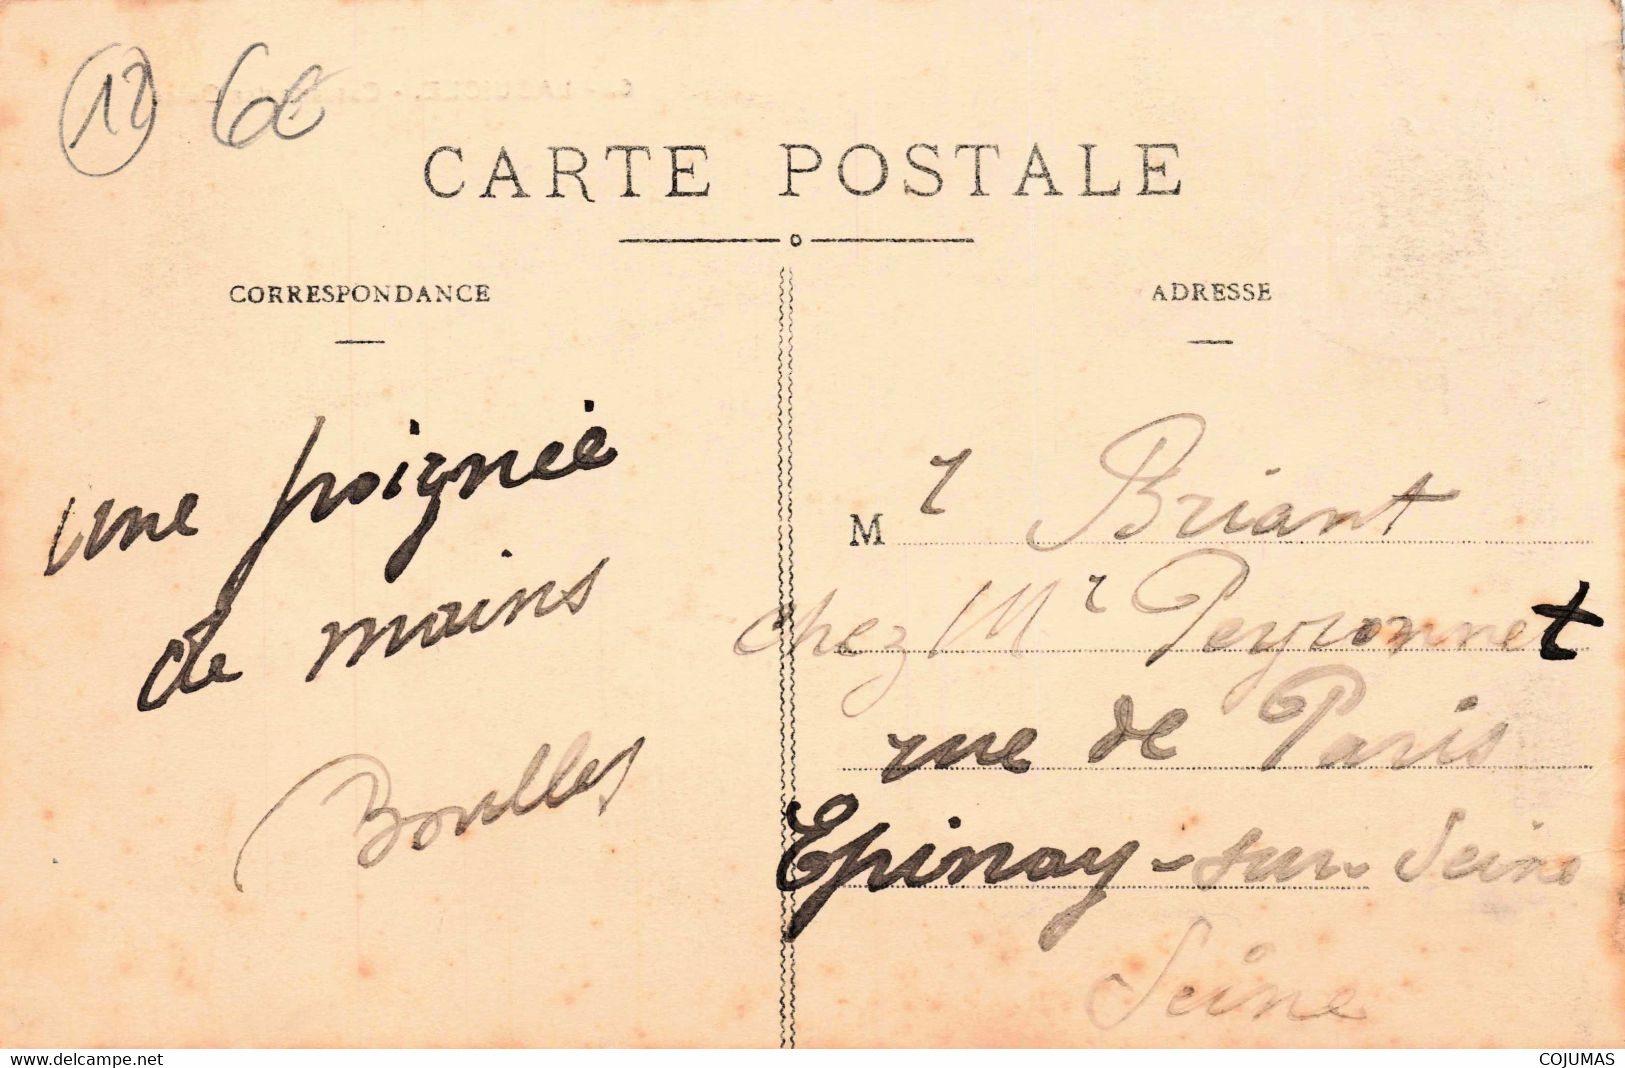 12 6e
CARTE POSTALE
CORRESPONDANCE
une poignée
de mains
Boulles
ADRESSE
Mr Briant
chez Mr Peyronnet
rue de Paris
Epinay-sur-Seine
Seine
www.delcampe.net
COJUMAS